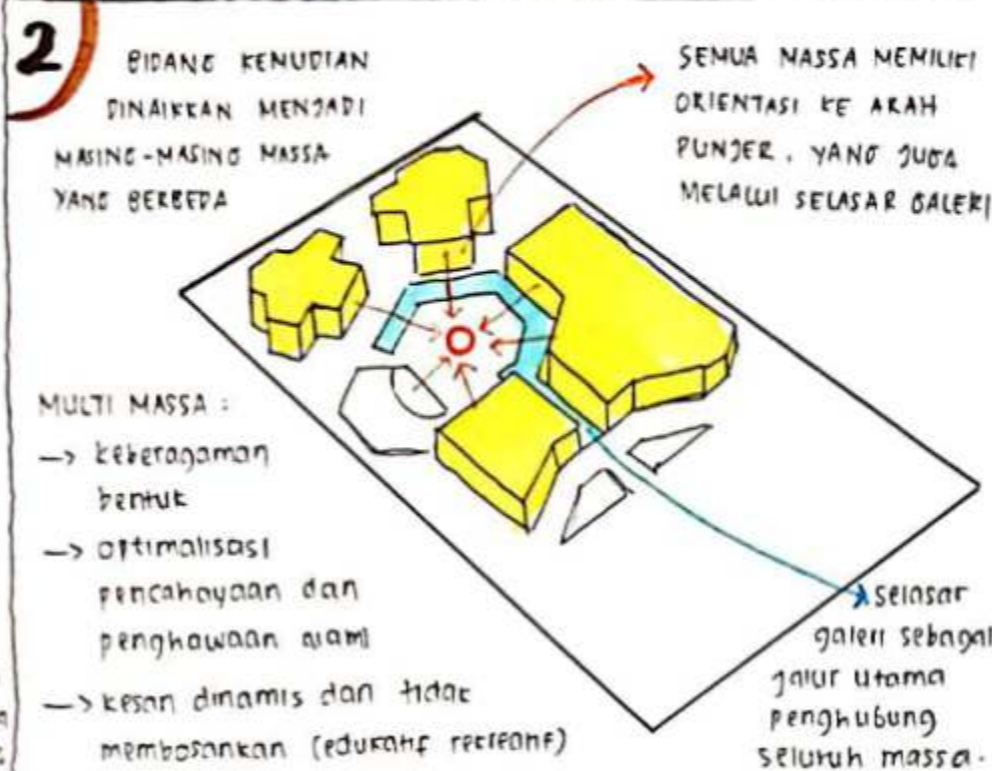 2
BIDANG KEMUDIAN
DINAIKKAN MENJADI
MASING-MASING MASSA
YANG BERBEDA
SEMUA MASSA MEMILIKI
ORIENTASI KE ARAH
PUNJER, YANG JUGA
MELALUI SELASAR GALERI
MULTI MASSA :
-> keberagaman
bentuk
-> optimalisasi
pencahayaan dan
penghawaan alami
-> kesan dinamis dan tidak
membosankan (edukatif rekreatif)
selasar
galeri sebagai
jalur utama
penghubung
seluruh massa.